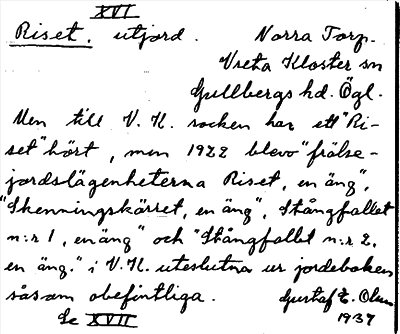 XVI
Riset. utjord. Norra Torp.
Vreta Kloster sn
Gullbergs hd. Ögl.
Men till V. K. socken har ett "Ri-
set" hört, men 1922 blevo "frälse-
jordslägenheterna Riset, en äng",
"Skenningskärret, en äng", Stångfallet
n:r 1, en äng" och "Stångfallet n:r 2,
en äng." i V. K. uteslutna ur jordeboken
såsom obefintliga. Gustaf E. Olsen
Se XVII 1937